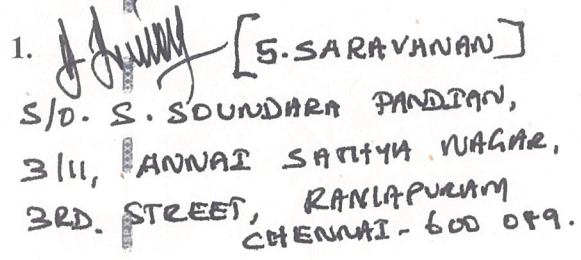 1. [S. SARAVANAN]
S/O. S. SOUNDARA PANDIAN,
3/11, ANNAI SATHYA NAGAR,
3RD. STREET, RANIAPURAM
CHENNAI - 600 049.